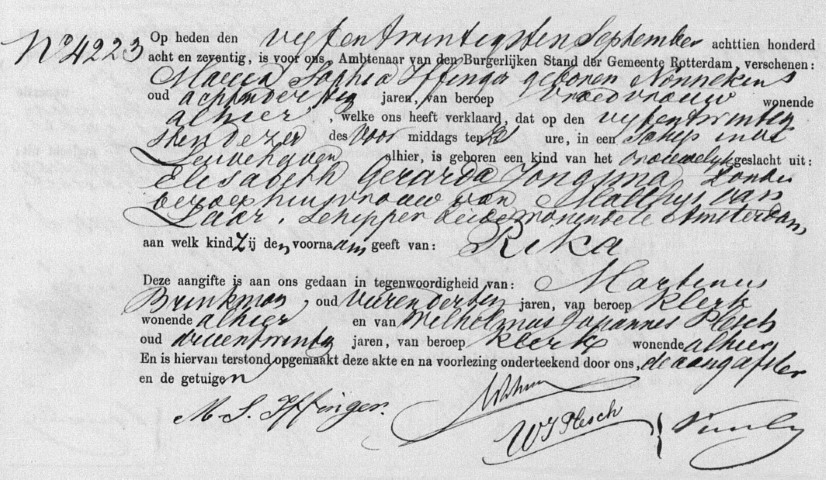 No 4223 Op heden den vyfentwintigsten September achttien honderd
acht en zeventig, is voor ons Ambtenaar van den Burgerlijken Stand der Gemeente Rotterdam, verschenen:
Maria Sophia Iffinger geboren Nonnekens
oud achtendertig jaren, van beroep vroedvrouw wonende
alhier, welke ons heeft verklaard, dat op den vyfentwintig
sten dezer des voor middags ten ure, in een schip in de
Leuvehaven alhier, is geboren een kind van het vrouwelyk geslacht uit:
Elisabeth Gerarda Jongsma zonder
beroep huisvrouw van Matthys van
Laar, schipper beide wonende te Amsterdam
aan welk kind Zij den voornaam geeft van: Rika
Deze aangifte is aan ons gedaan in tegenwoordigheid van: Martinus
Brinkman, oud vierendertig jaren, van beroep klerk
wonende alhier en van Wilhelmus Johannes Plesch
oud drieentwintig jaren, van beroep klerk wonende alhier
En is hiervan terstond opgemaakt deze akte en na voorlezing onderteekend door ons, de aangeefster
en de getuigen
M. S. Iffinger.
WJ Plesch